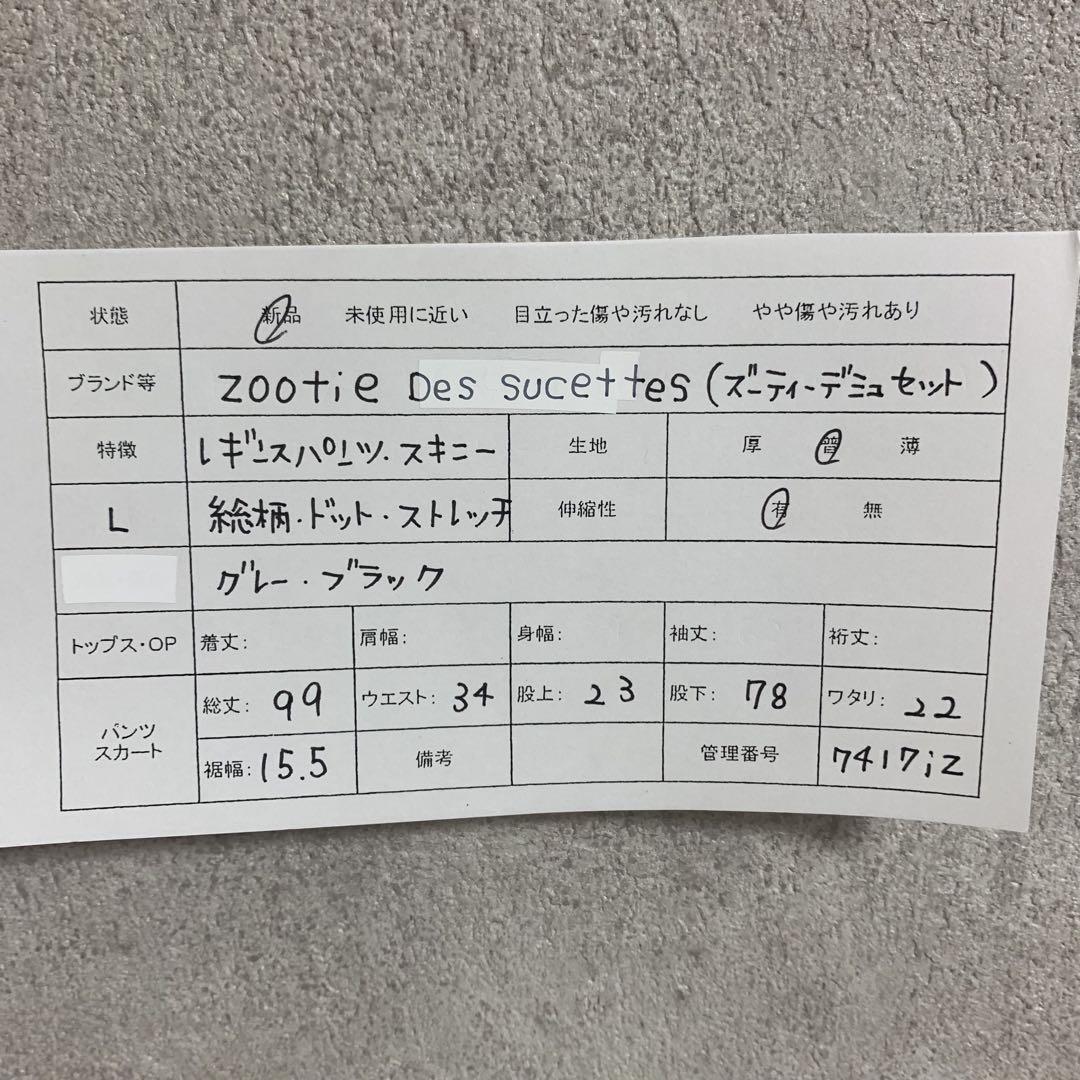 状態 新品 未使用に近い 目立った傷や汚れなし やや傷や汚れあり
ブランド等 zootie Des sucettes (ズーティーデミュセット)
特徴 レギンスパンツ・スキニー 生地 厚 薄
L 総柄・ドット・ストレッチ 伸縮性 有 無
グレー・ブラック
トップス・OP 着丈: 肩幅: 身幅: 袖丈: 裄丈:
パンツ スカート 総丈: 99 ウエスト: 34 股上: 23 股下: 78 ワタリ: 22
裾幅: 15.5 備考 管理番号 7417iz